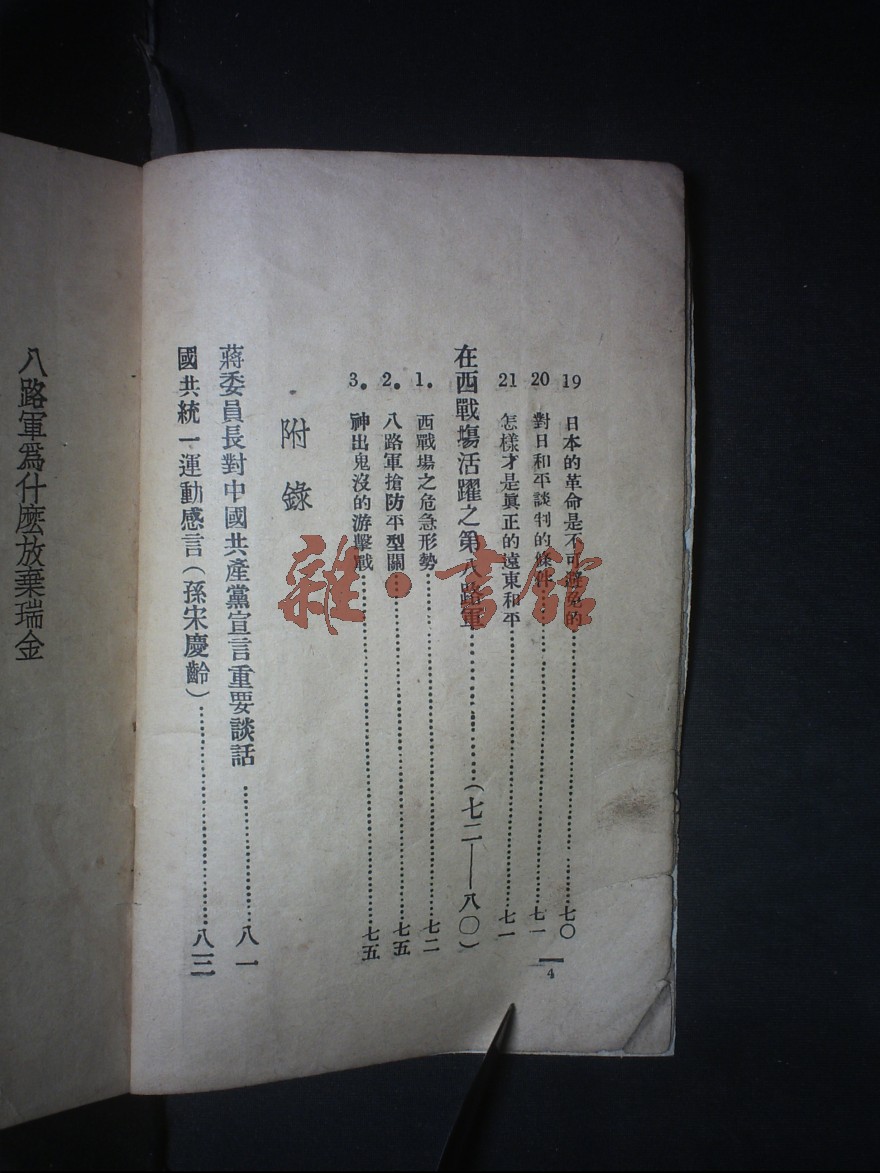 19 日本的革命是不可避免的……七〇
20 對日和平談判的條件……七一
21 怎樣才是眞正的遠東和平……七一
在西戰塲活躍之第八路軍……(七二——八〇)
1. 西戰場之危急形勢……七二
2. 八路軍搶防平型關……七五
3. 神出鬼沒的游擊戰……七五
附錄
蔣委員長對中國共產黨宣言重要談話……八一
國共統一運動感言(孫宋慶齡)……八三
4
八路軍爲什麽放棄瑞金
雜·書館